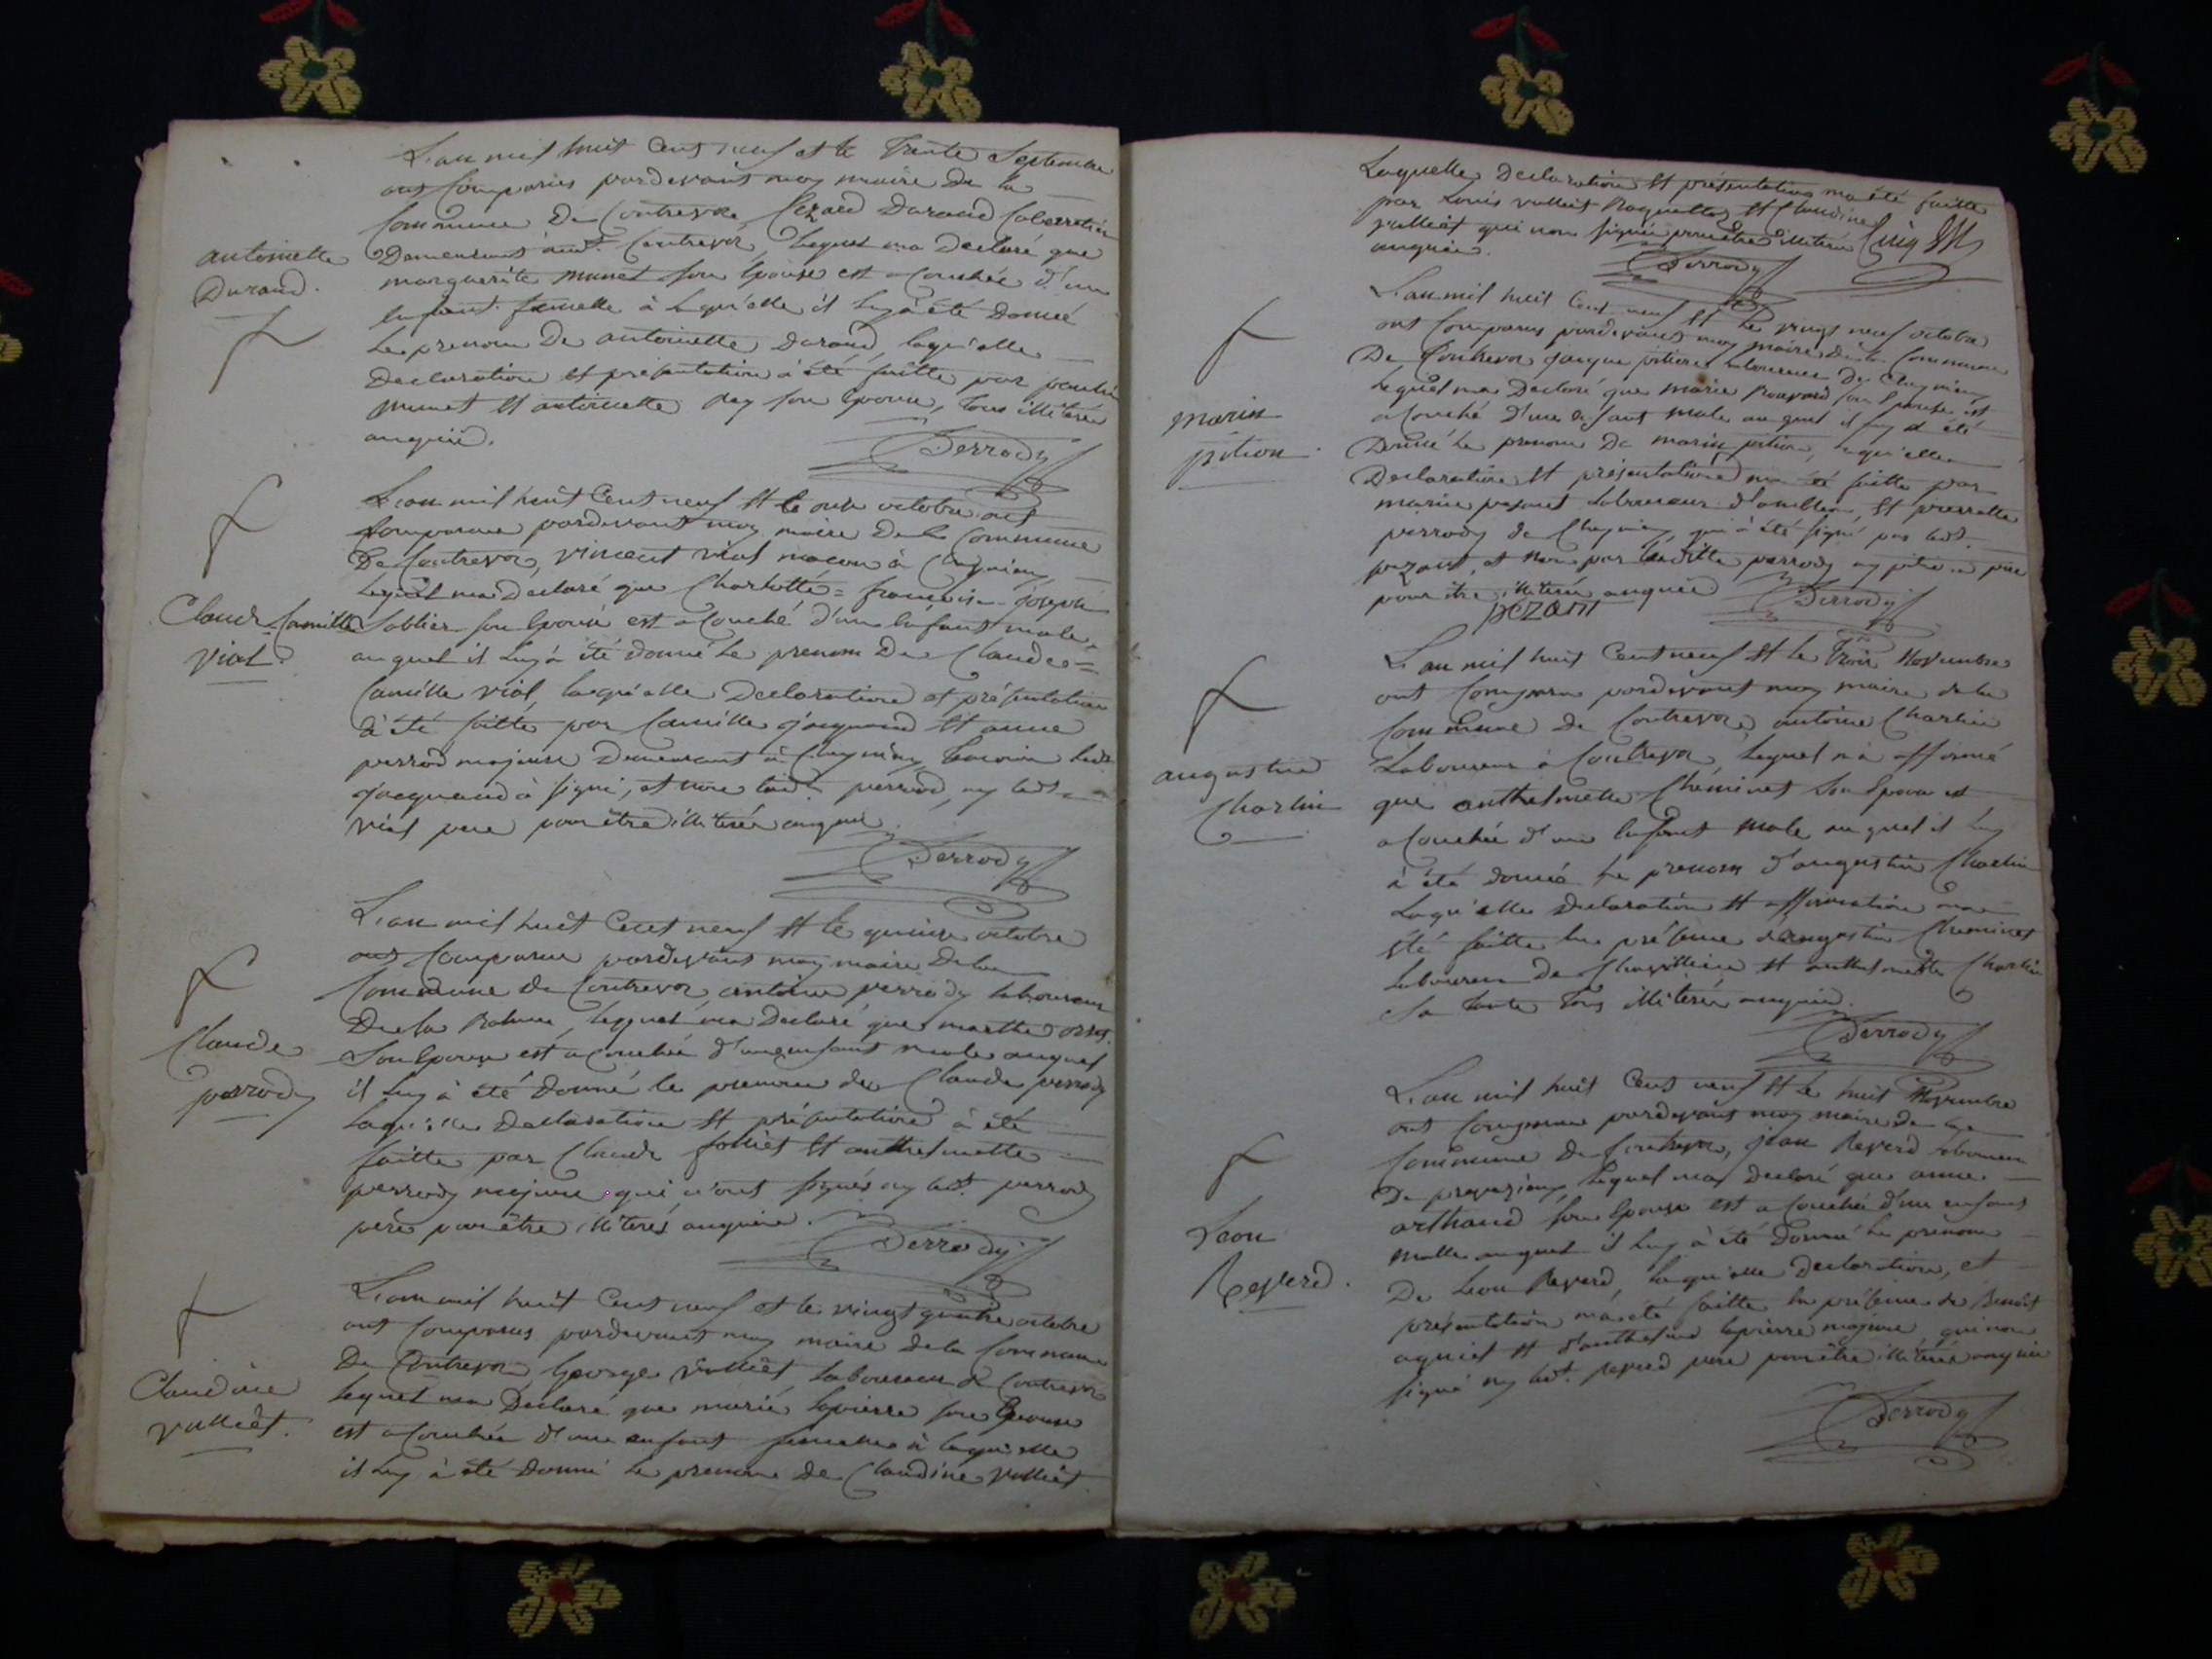 L'an mil huit Cent neuf et le Trente Septembre
ont Comparus pardevant moy maire De la
Commune De Contrevoz Cezard Durand
Demeurant Contrevoz, lequel ma Declaré que
antoinette
Durand.
marguerite munet son Epouse est acouchée d'un
Enfant femelle à laquelle il luy à été Donné
Le prenom De antoinette Durand laqu'elle
Declaration et presentation à été faitte par
munet et antoinette Rey son Epouse, tous illiteré
anquié.
Perrody
L'an mil huit Cent neuf et le onze octobre ont
Comparue pardevant moy maire De la Commune
De Contrevoz, vincent vial macon à
Lequel ma Declaré que Charlotte = francoise joseph
Claude Camille
vial.
Soblier son Epouse est acouché d'un Enfant male,
auquel il luy à été donné le prenom De Claude =
Camille vial, laqu'elle Declaration et présentation
à été faitte par Camille jacquand et anne
perrod majeure Demeurant à Cheyniey
jacquand à signé, et non perrod, ny ledt
vial pere pour être illiteré anquié
Perrody
L'an mil huit Cent neuf et le quinze octobre
ont Comparue pardevant moy maire Dela
Commune de Contrevoz antoine perrody laboureur
De la lequel ma Declaré que marthe
Claude
perrody
Son Epouse est acouchée d'un enfant male auquel
il luy à été Donné le prenom de Claude perrody
Laqu'elle Declaration et présentation à été
faitte par Claude folliet et anthelmette
perrody majeure qui n'ont signés ny ledt. perrody
père pour être illiterés anquié.
Perrody
L'an mil huit Cent neuf et le vingt quatre octobre
ont Comparus pardevant moy maire dela Commune
De Contrevoz, george vulliet laboureur à Contrevoz
Claudine
vulliet.
lequel ma Declaré que marie lapierre son Epouse
est acouchée d'une enfant femelle à laqu'elle
il luy à été donné le prenom de Claudine vulliet
Laquelle Declaration et présentation ma été faitte
par Louis vulliet et Claudine
vulliet qui non signé pour être illiteré
anquié.
Perrody
L'an mil huit Cent neuf et le vingt neuf octobre
ont Comparus pardevant moy maire de la Commune
De Contrevoz jacque pition laboureur De Cheyniey
lequel ma Declaré que marie son Epouse est
marin
pition.
acouché d'un Enfant male auquel il luy à été
Donné le prenom De marin pition, laqu'elle
Declaration et présentation ma été faitte par
marin pezant laboureur et pierrette
perrody de Cheyniey, qui à été signé par ledt.
pezant, et non par laditte perrody ny pition père
pour être illiteré anquié
Perrody
pezant
L'an mil huit Cent neuf et le Trois Novembre
ont Comparu pardevant moy maire dela
Commune de Contrevoz, antoine Charlin
augustin
Charlin
Laboureur à Contrevoz, lequel m'a afformé
que anthelmette Cheminet son Epouse est
acouchée d'un Enfant male auquel il luy
à été donné le prenom d'augustin Charlin
Laqu'elle declaration et afformation ma
été faitte En présence d'augustin Cheminet
Laboureur De et anthelmette Charlin
sa tante tous illiterés anquié.
Perrody
L'an mil huit Cent neuf et le huit Novembre
ont Comparue pardevant moy maire De la
Commune De Contrevoz, jean Reverd laboureur
De lequel ma Declaré que anne
Leon
Reverd.
arthaud son Epouse est acouchée d'un enfant
malle auquel il luy à été Donné le prenom
De Leon Reverd, laqu'elle declaration, et
présentation ma été faitte En présence de Benoit
et d'anthelme lapierre majeure qui non
signé ny ledt. Reverd pere pour être illiterés anquié
Perrody